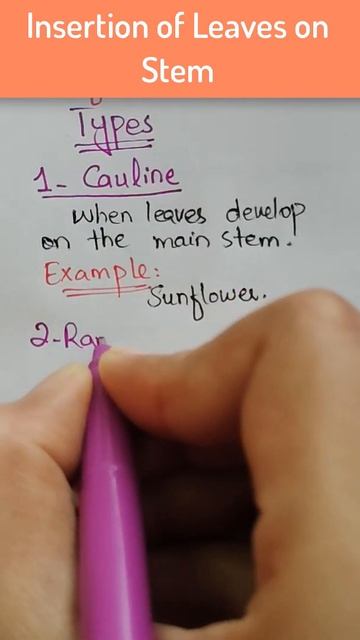 Insertion of Leaves on
Stem
Types
1- Cauline
When leaves develop
on the main stem.
Example:
Sunflower.
2-Ran